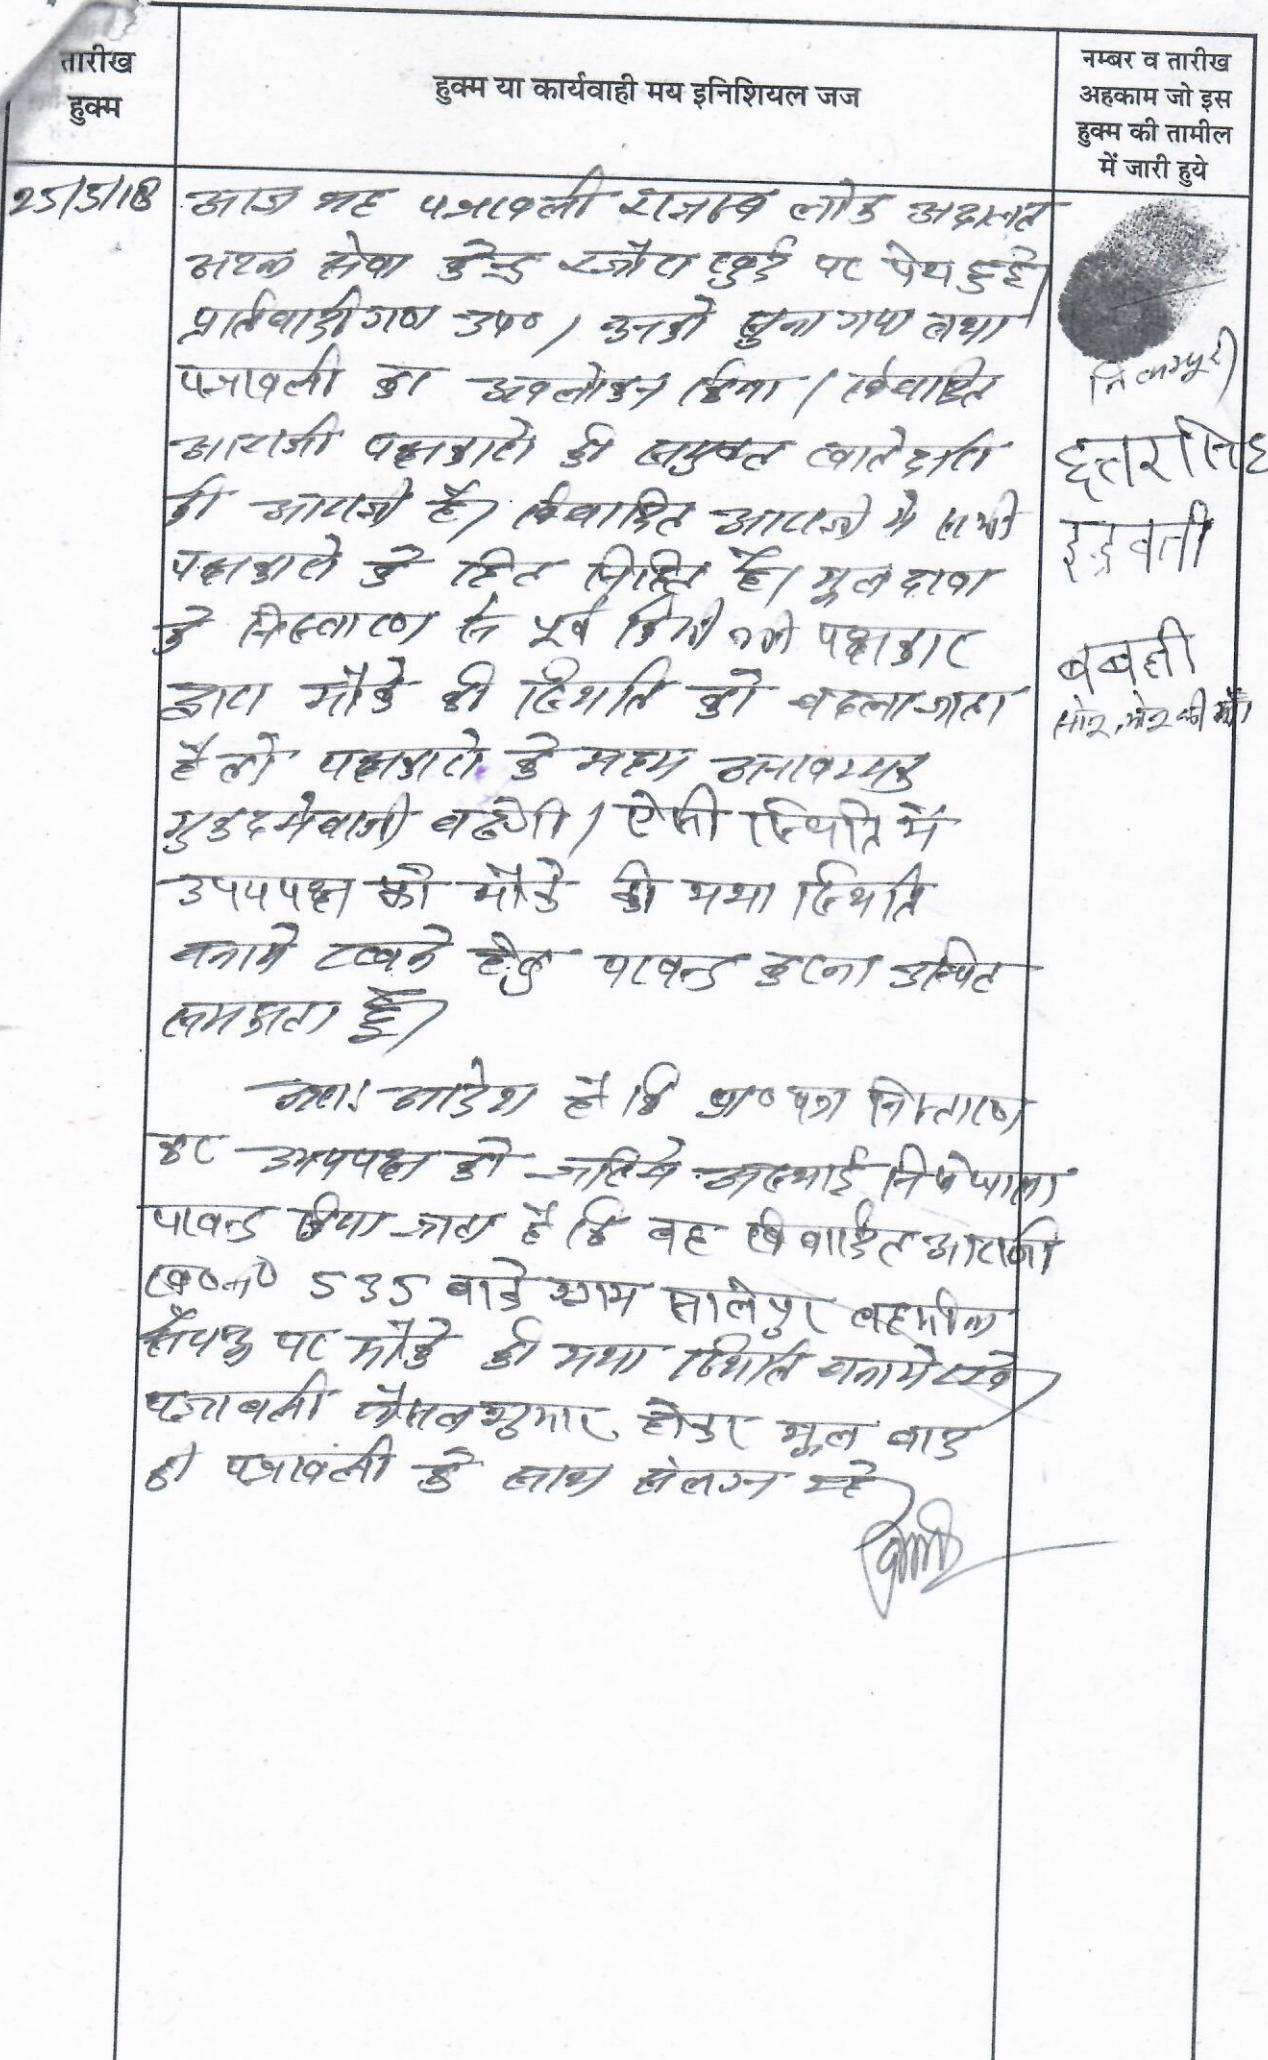 तारीख
हुक्म
हुक्म या कार्यवाही मय इनिशियल जज
नम्बर व तारीख
अहकाम जो इस
हुक्म की तामील
में जारी हुये
25/5/18
आज यह पत्रावली राजस्व लोक अदालत
अटल सेवा केन्द्र पर पेश हुई।
प्रतिवादीगण उप०। उनको सुना गया तथा
पत्रावली का अवलोकन किया। विवादित
आराजी पक्षकारो की संयुक्त खातेदारी
की आराजी है। विवादित आराजी मे सभी
पक्षकारो के हित निहित है। मूल दावा
के निस्तारण से पूर्व किसी भी पक्षकार
द्वारा मौके की स्थिति को बदला जाता
है तो पक्षकारो के मध्य अनावश्यक
मुकदमेवाजी बढेगी। ऐसी स्थिति में
उभयपक्ष को मौके की यथा स्थिति
बनाये रखने हेतु पाबन्द करना उचित
समझता हूँ।
अतः आदेश है कि प्रा० पत्र निस्तारण
कर उभयपक्ष को जरिये अस्थाई निषेधाज्ञा
पाबन्द किया जाता है कि वह विवादित आराजी
ख०न० 535 वाके ग्राम सालेपुर तहसील
सैपऊ पर मौके की यथा स्थिति बनाये रखे।
पत्रावली फैसल शुमार होकर मूल वाद
की पत्रावली के साथ संलग्न रहे।
छत्तरसिंह
इन्द्रवती
बबली